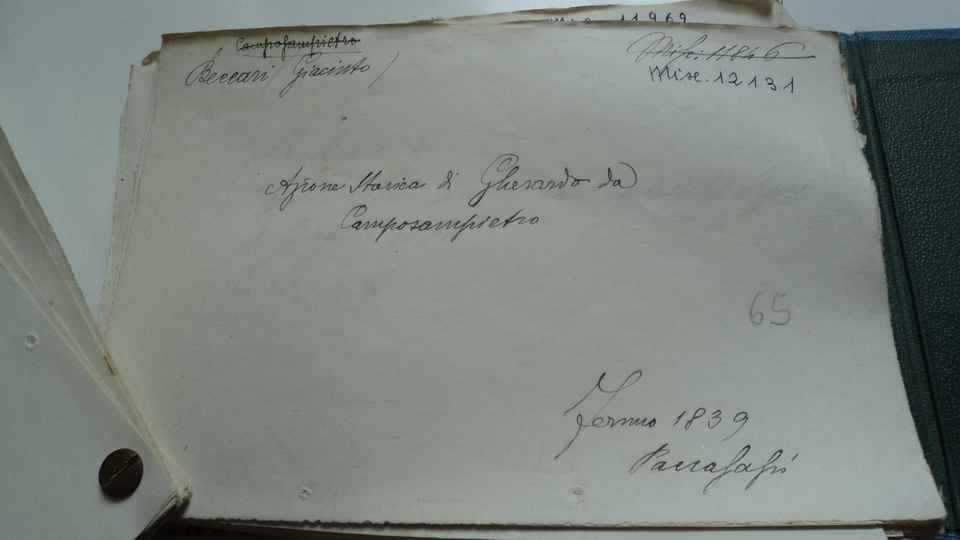 Misc. 11969
Camposampietro
Beccari (Giacinto)
Misc. 11846
Misc. 12131
Azione Storica di Gherardo da
Camposampietro
65
Fermo 1839
Paccasassi